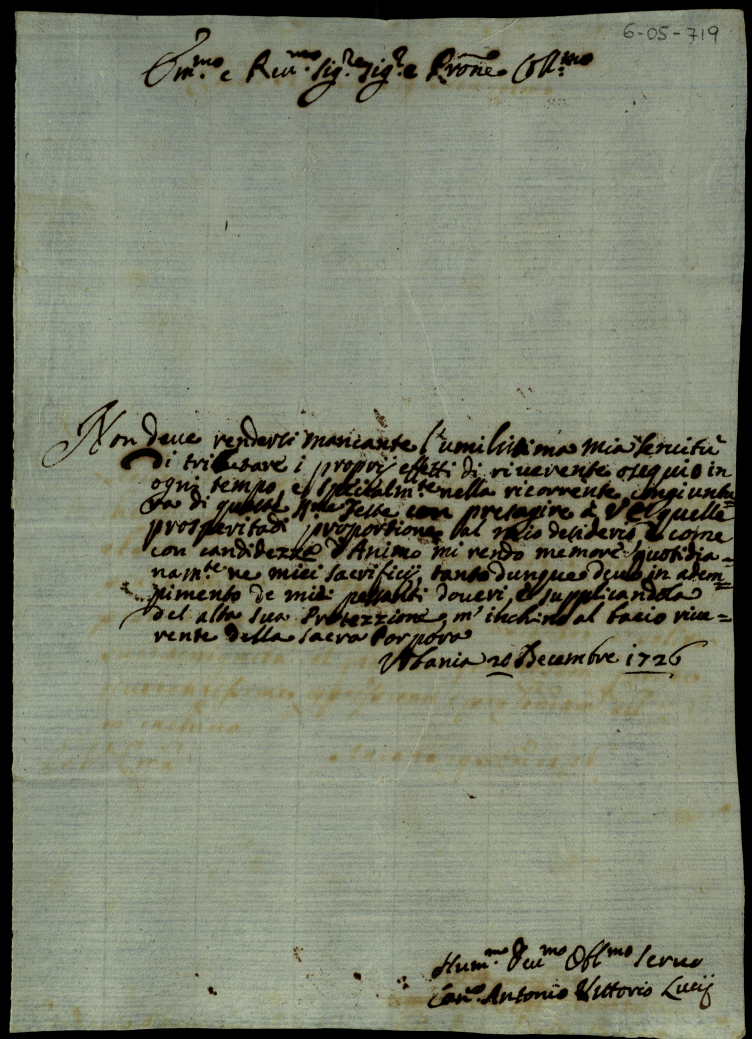 6-05-719
Em.mo e Rev.mo Sig.re Sig.re e Prōne Col.mo
Non deve rendersi mancante l'umilissima mia servitù
di tributare i proprij effetti di riverente osequio in
ogni tempo e spetialm.te nella ricorrente congiuntu=
ra di queste feste con presagire à V E quelle
prosperitadi proportionate al mio desiderio, e come
con candidezza d'Animo mi rendo memore quotidia=
nam.te ne miei sacrificij, tanto dunque devo in adem=
pimento de miei doveri, e supplicandola
del alta sua Protezzione, m'inchino al bacio rive=
rente della sacra Porpora
Urbania 20 Decembre 1726
Hum.mo Dev.mo Obl.mo Servo
Can.co Antonio Vittorio Lucij